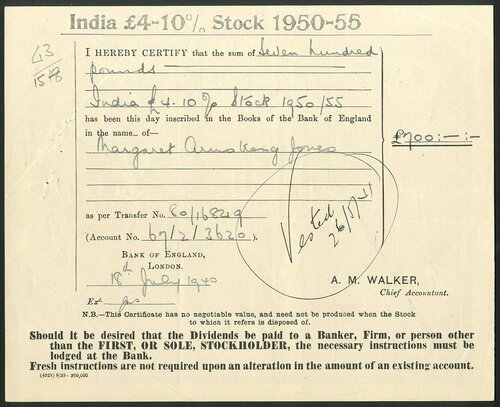 India £4-10% Stock 1950-55
I HEREBY CERTIFY that the sum of Seven hundred
pounds
India £4.10% Stock 1950/55
has been this day inscribed in the Books of the Bank of England
in the name of—
Margaret Armstrong Jones
£700:—:—
as per Transfer No. 80/16849
(Account No. 67/2/3620).
Vested
BANK OF ENGLAND,
LONDON.
18th July 1940
A. M. WALKER,
Chief Accountant.
N.B.—This Certificate has no negotiable value, and need not be produced when the Stock
to which it refers is disposed of.
Should it be desired that the Dividends be paid to a Banker, Firm, or person other
than the FIRST, OR SOLE, STOCKHOLDER, the necessary instructions must be
lodged at the Bank.
Fresh instructions are not required upon an alteration in the amount of an existing account.